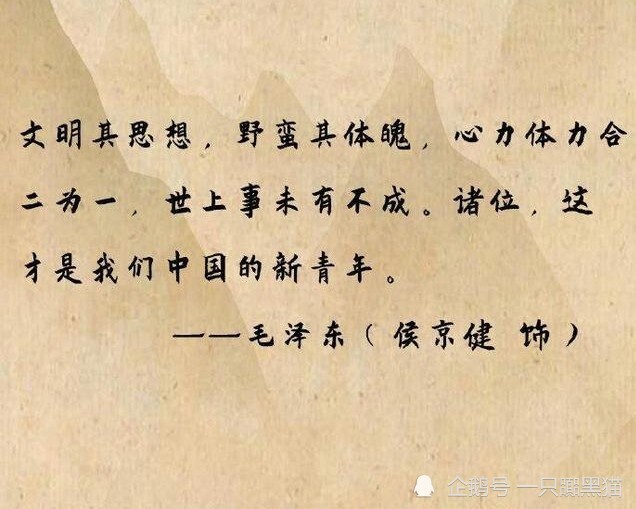 文明其思想，野蛮其体魄，心力体力合
二为一，世上事未有不成。诸位，这
才是我们中国的新青年。
——毛泽东（侯京健 饰）
企鹅号 一只蹴黑猫